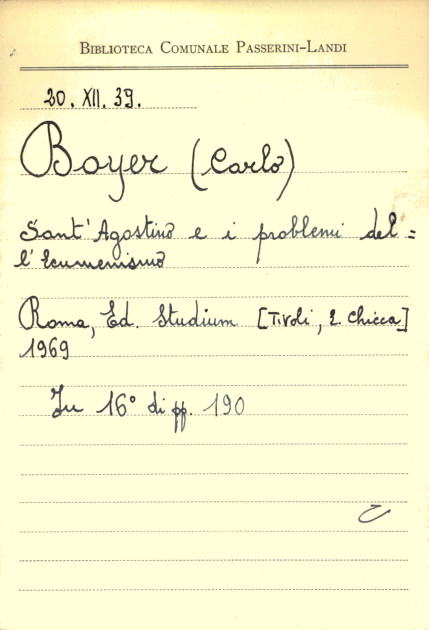 BIBLIOTECA COMUNALE PASSERINI-LANDI
20. XII. 39.
Boyer (Carlo)
Sant'Agostino e i problemi del=
l'Ecumenismo
Roma, Ed. Studium [Tivoli, E. Chicca]
1969
In 16° di pp. 190